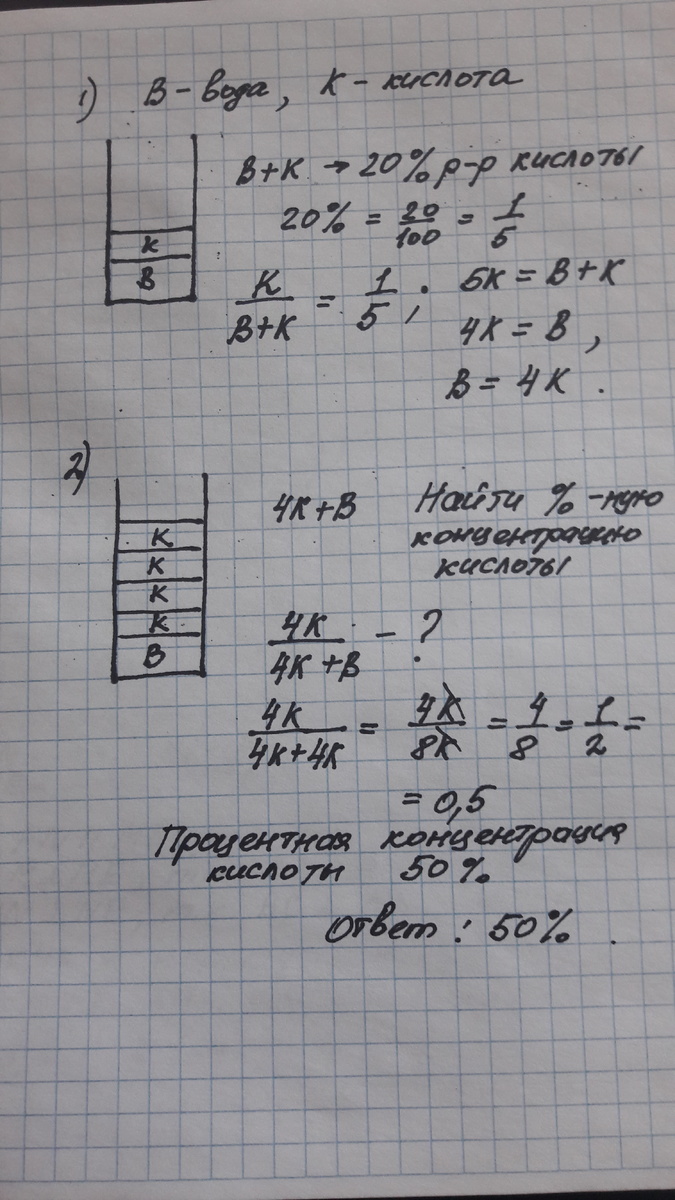 1) В - вода, К - кислота
В+К → 20% р-р кислоты
20% = 20/100 = 1/5
К
В
К/(В+К) = 1/5 ; 5К = В+К
4К = В ,
В = 4К .
2)
4К+В Найти % -ную
концентрацию
кислоты
К
К
К
К
В
4К/(4К+В) - ?
4К/(4К+4К) = 4К/8К = 4/8 = 1/2 =
= 0,5
Процентная концентрация
кислоты 50%
Ответ : 50% .